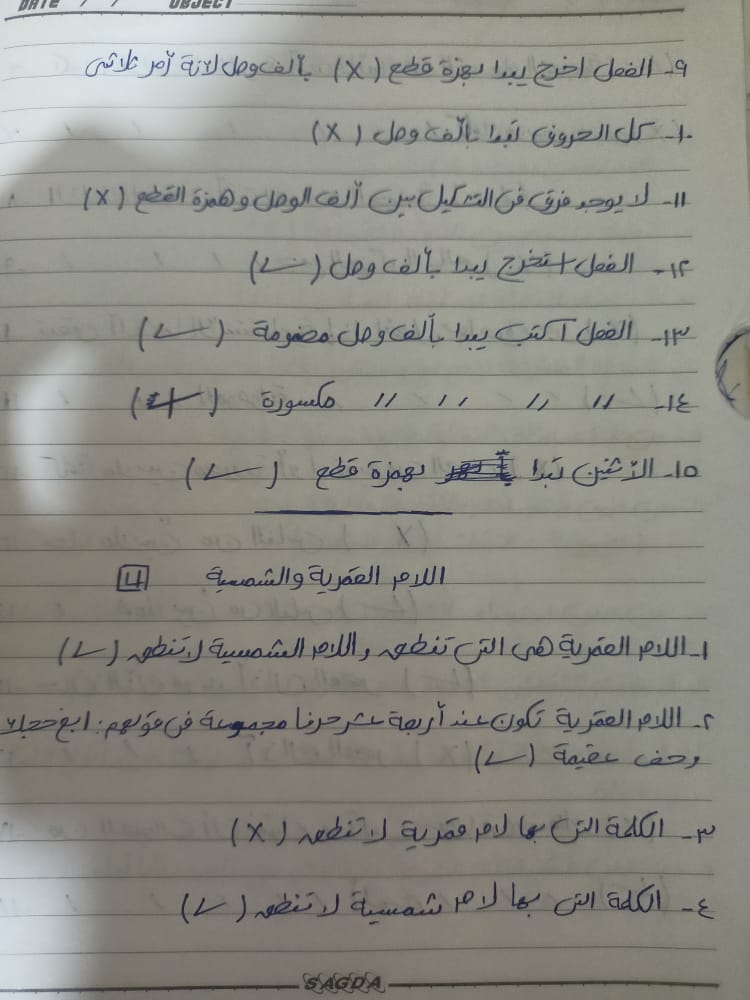 DATE / / OBJECT
٩- الفعل اخرج يبدا بهمزة قطع (X) بألف وصل لانة أمر ثلاثى
١٠- كل الحروف تبدا بألف وصل (X)
١١- لا يوجد فرق فى التشكيل بين ألف الوصل وهمزة القطع (X)
١٢- الفعل استخرج يبدا بألف وصل (✓)
١٣- الفعل اكتب يبدا بألف وصل مضمومة (✓)
١٤- // // // // مكسورة ( )
١٥- الأثنين تبدا بهمزة قطع (✓)
اللام القمرية والشمسية 4
١- اللام القمرية هى التى تنطق واللام الشمسية لا تنطق (✓)
٢- اللام القمرية تكون عند أربعة عشر حرفا مجموعة فى قولهم: ابغ حجك
وخف عقيمة (✓)
٣- الكلمة التى بها لام قمرية لا تنطق (X)
٤- الكلمة التى بها لام شمسية لا تنطق (✓)
SAGDA